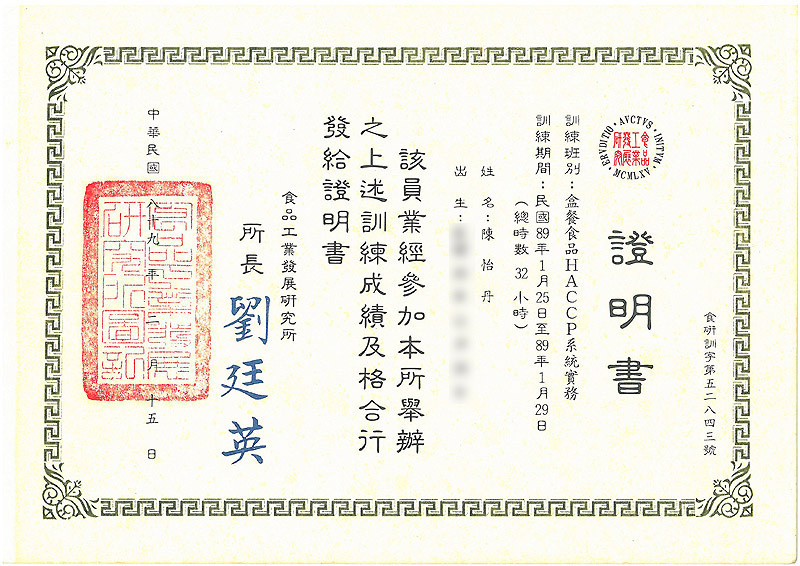 食研訓字第五二八四三號
證明書
ERVDITIO · AVCTVS · INITVM · MCMLXV
訓練班別：盒餐食品HACCP系統實務
訓練期間：民國89年1月25日至89年1月29日
（總時數 32 小時）
姓名：陳怡丹
出生：
該員業經參加本所舉辦
之上述訓練成績及格合行
發給證明書
食品工業發展研究所
所長 劉廷英
中華民國八十九年二月十五日